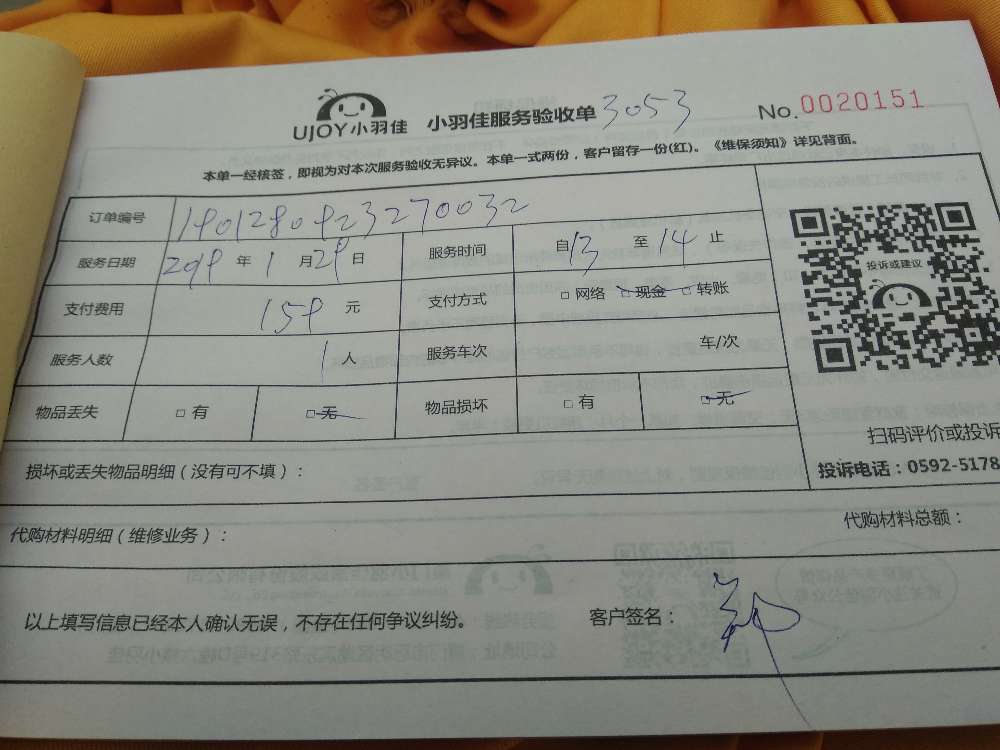 UJOY小羽佳 小羽佳服务验收单 3053 No.0020151
本单一经核签，即视为对本次服务验收无异议。本单一式两份，客户留存一份(红)。《维保须知》详见背面。
订单编号 1901280923270032
服务日期 2019 年 1 月 29 日 服务时间 自 13 至 14 止
投诉或建议
支付费用 159 元 支付方式 □ 网络 □ 现金 □ 转账
服务人数 1 人 服务车次 车/次
物品丢失 □ 有 □ 无 物品损坏 □ 有 □ 无
扫码评价或投诉
损坏或丢失物品明细（没有可不填）：
投诉电话：0592-5178
代购材料明细（维修业务）：
代购材料总额：
以上填写信息已经本人确认无误，不存在任何争议纠纷。 客户签名：